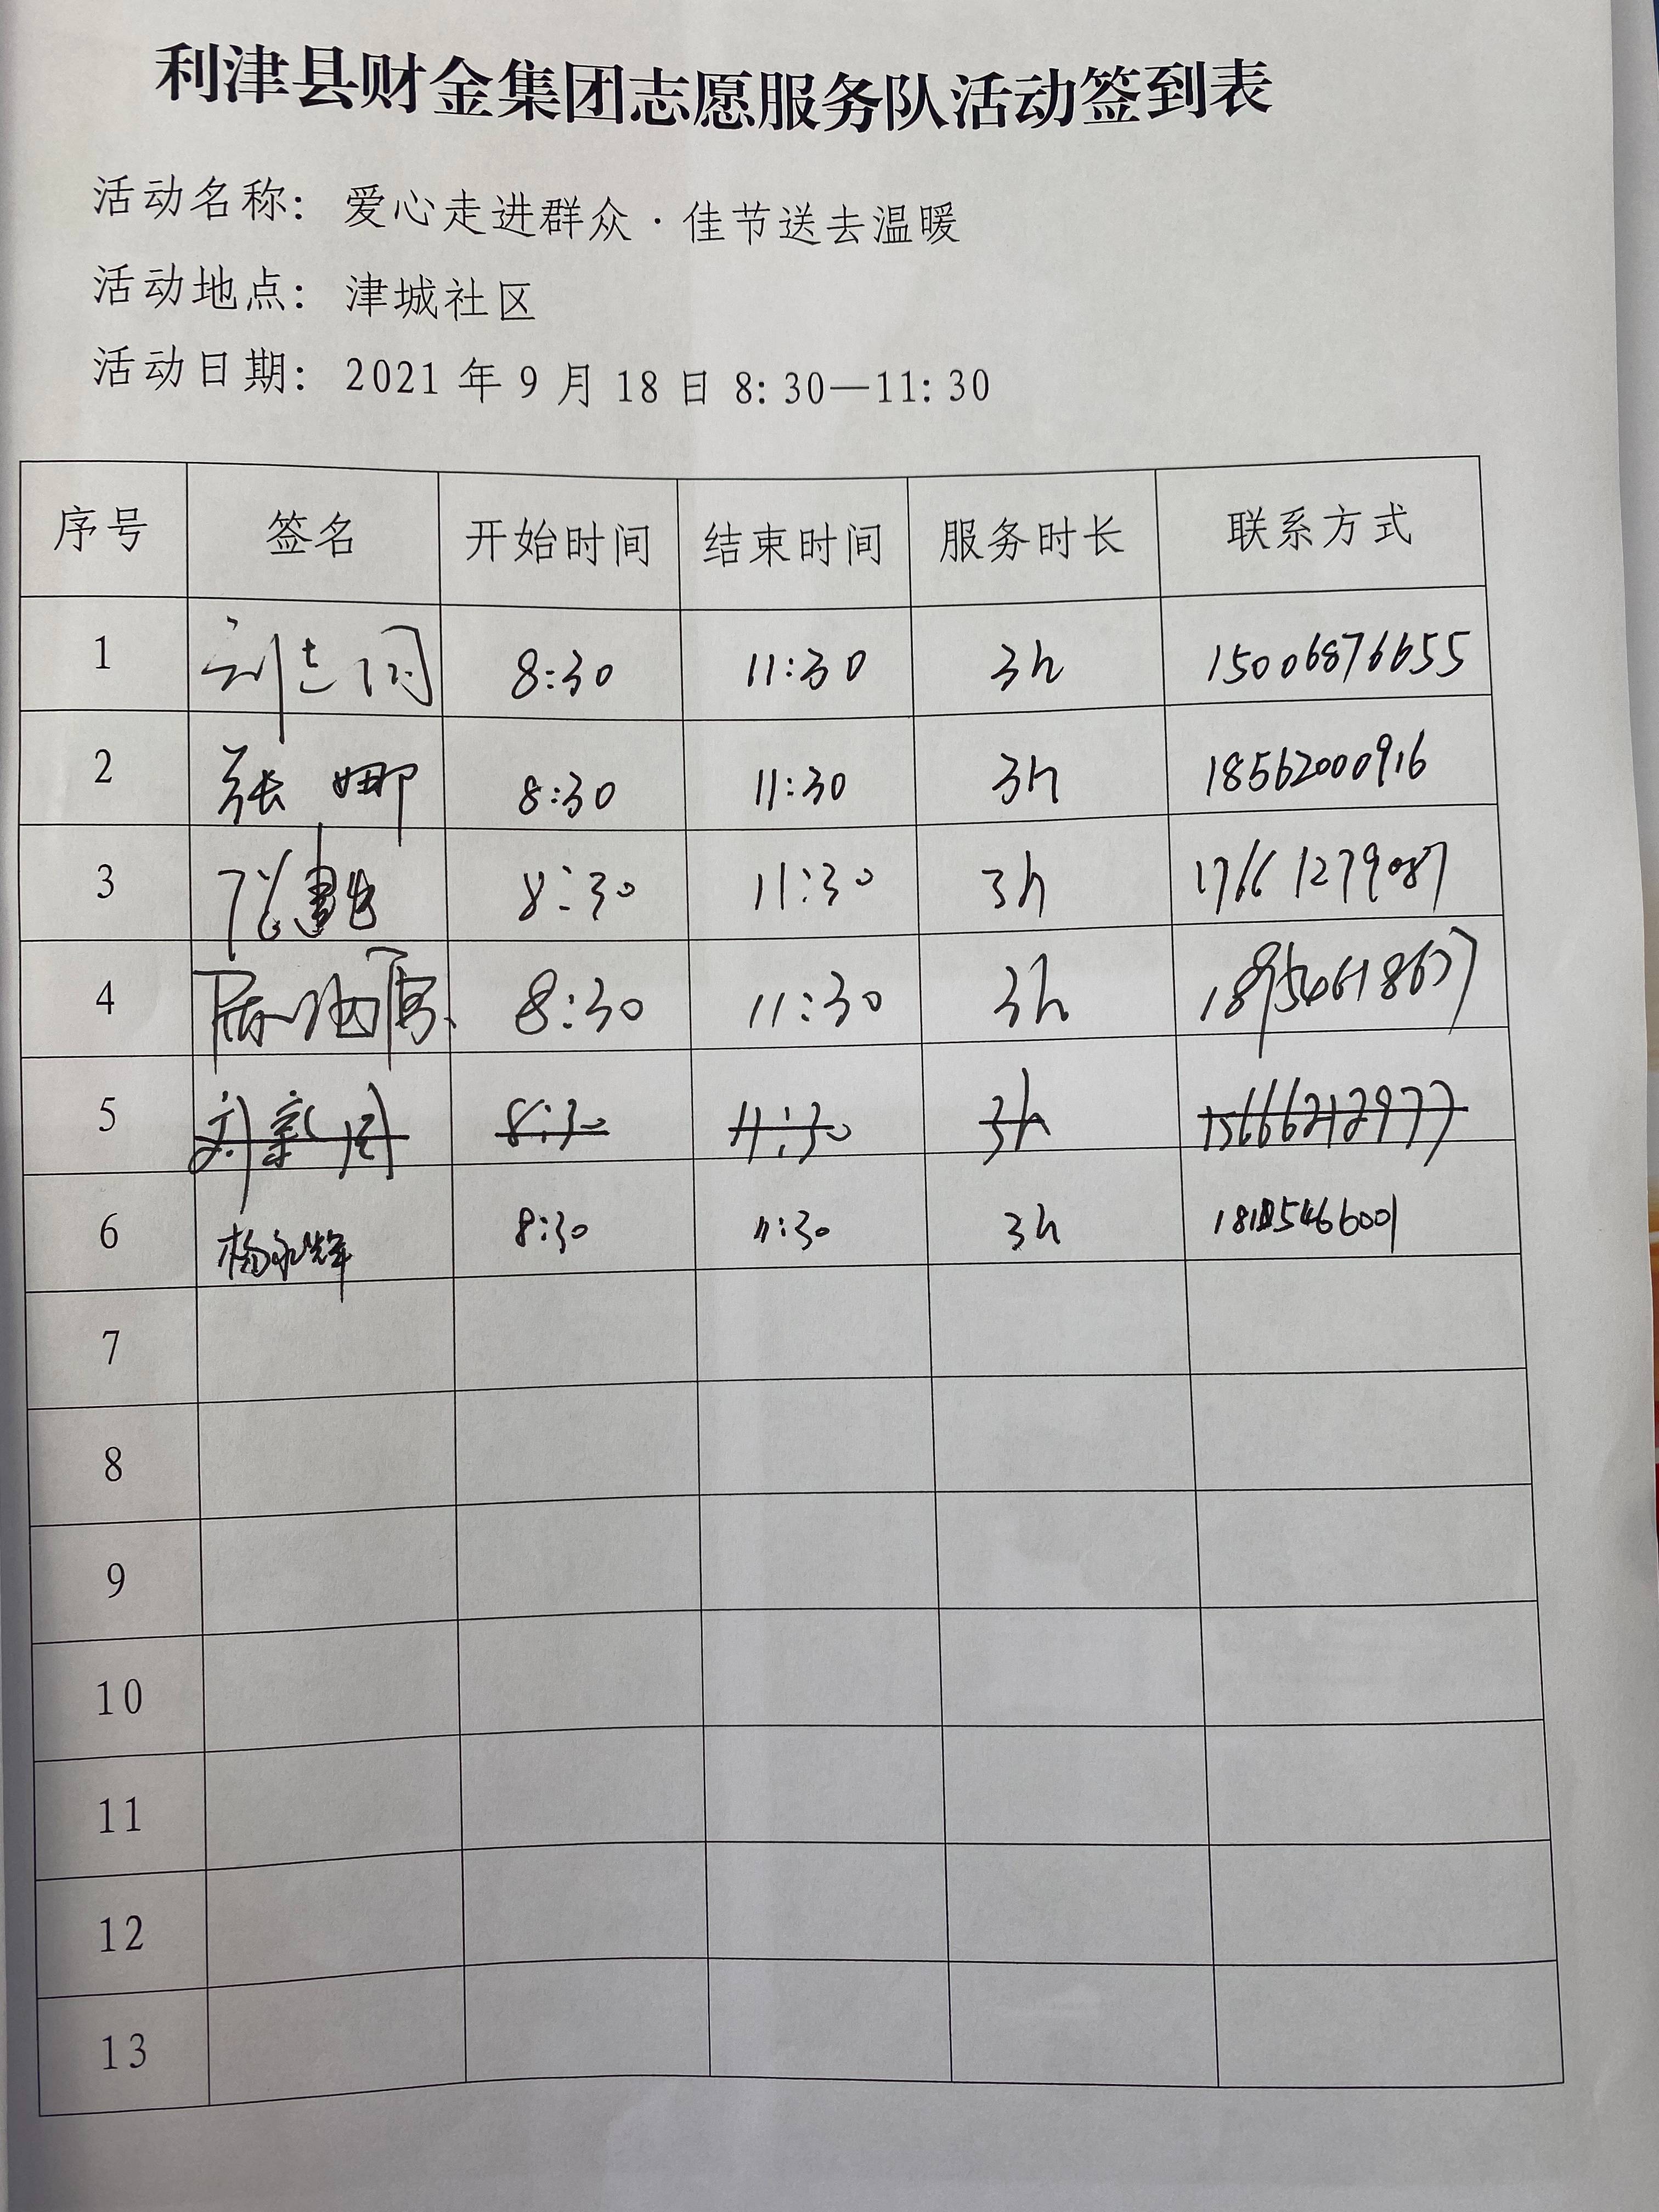 利津县财金集团志愿服务队活动签到表
活动名称：爱心走进群众·佳节送去温暖
活动地点：津城社区
活动日期：2021年9月18日8:30—11:30
序号 签名 开始时间 结束时间 服务时长 联系方式
1 8:30 11:30 3h 15006876655
2 张娜 8:30 11:30 3h 18562000916
3 8:30 11:30 3h 17661279087
4 8:30 11:30 3h
5 8:30 11:30 3h 15666212977
6 杨永辉 8:30 11:30 3h
7
8
9
10
11
12
13